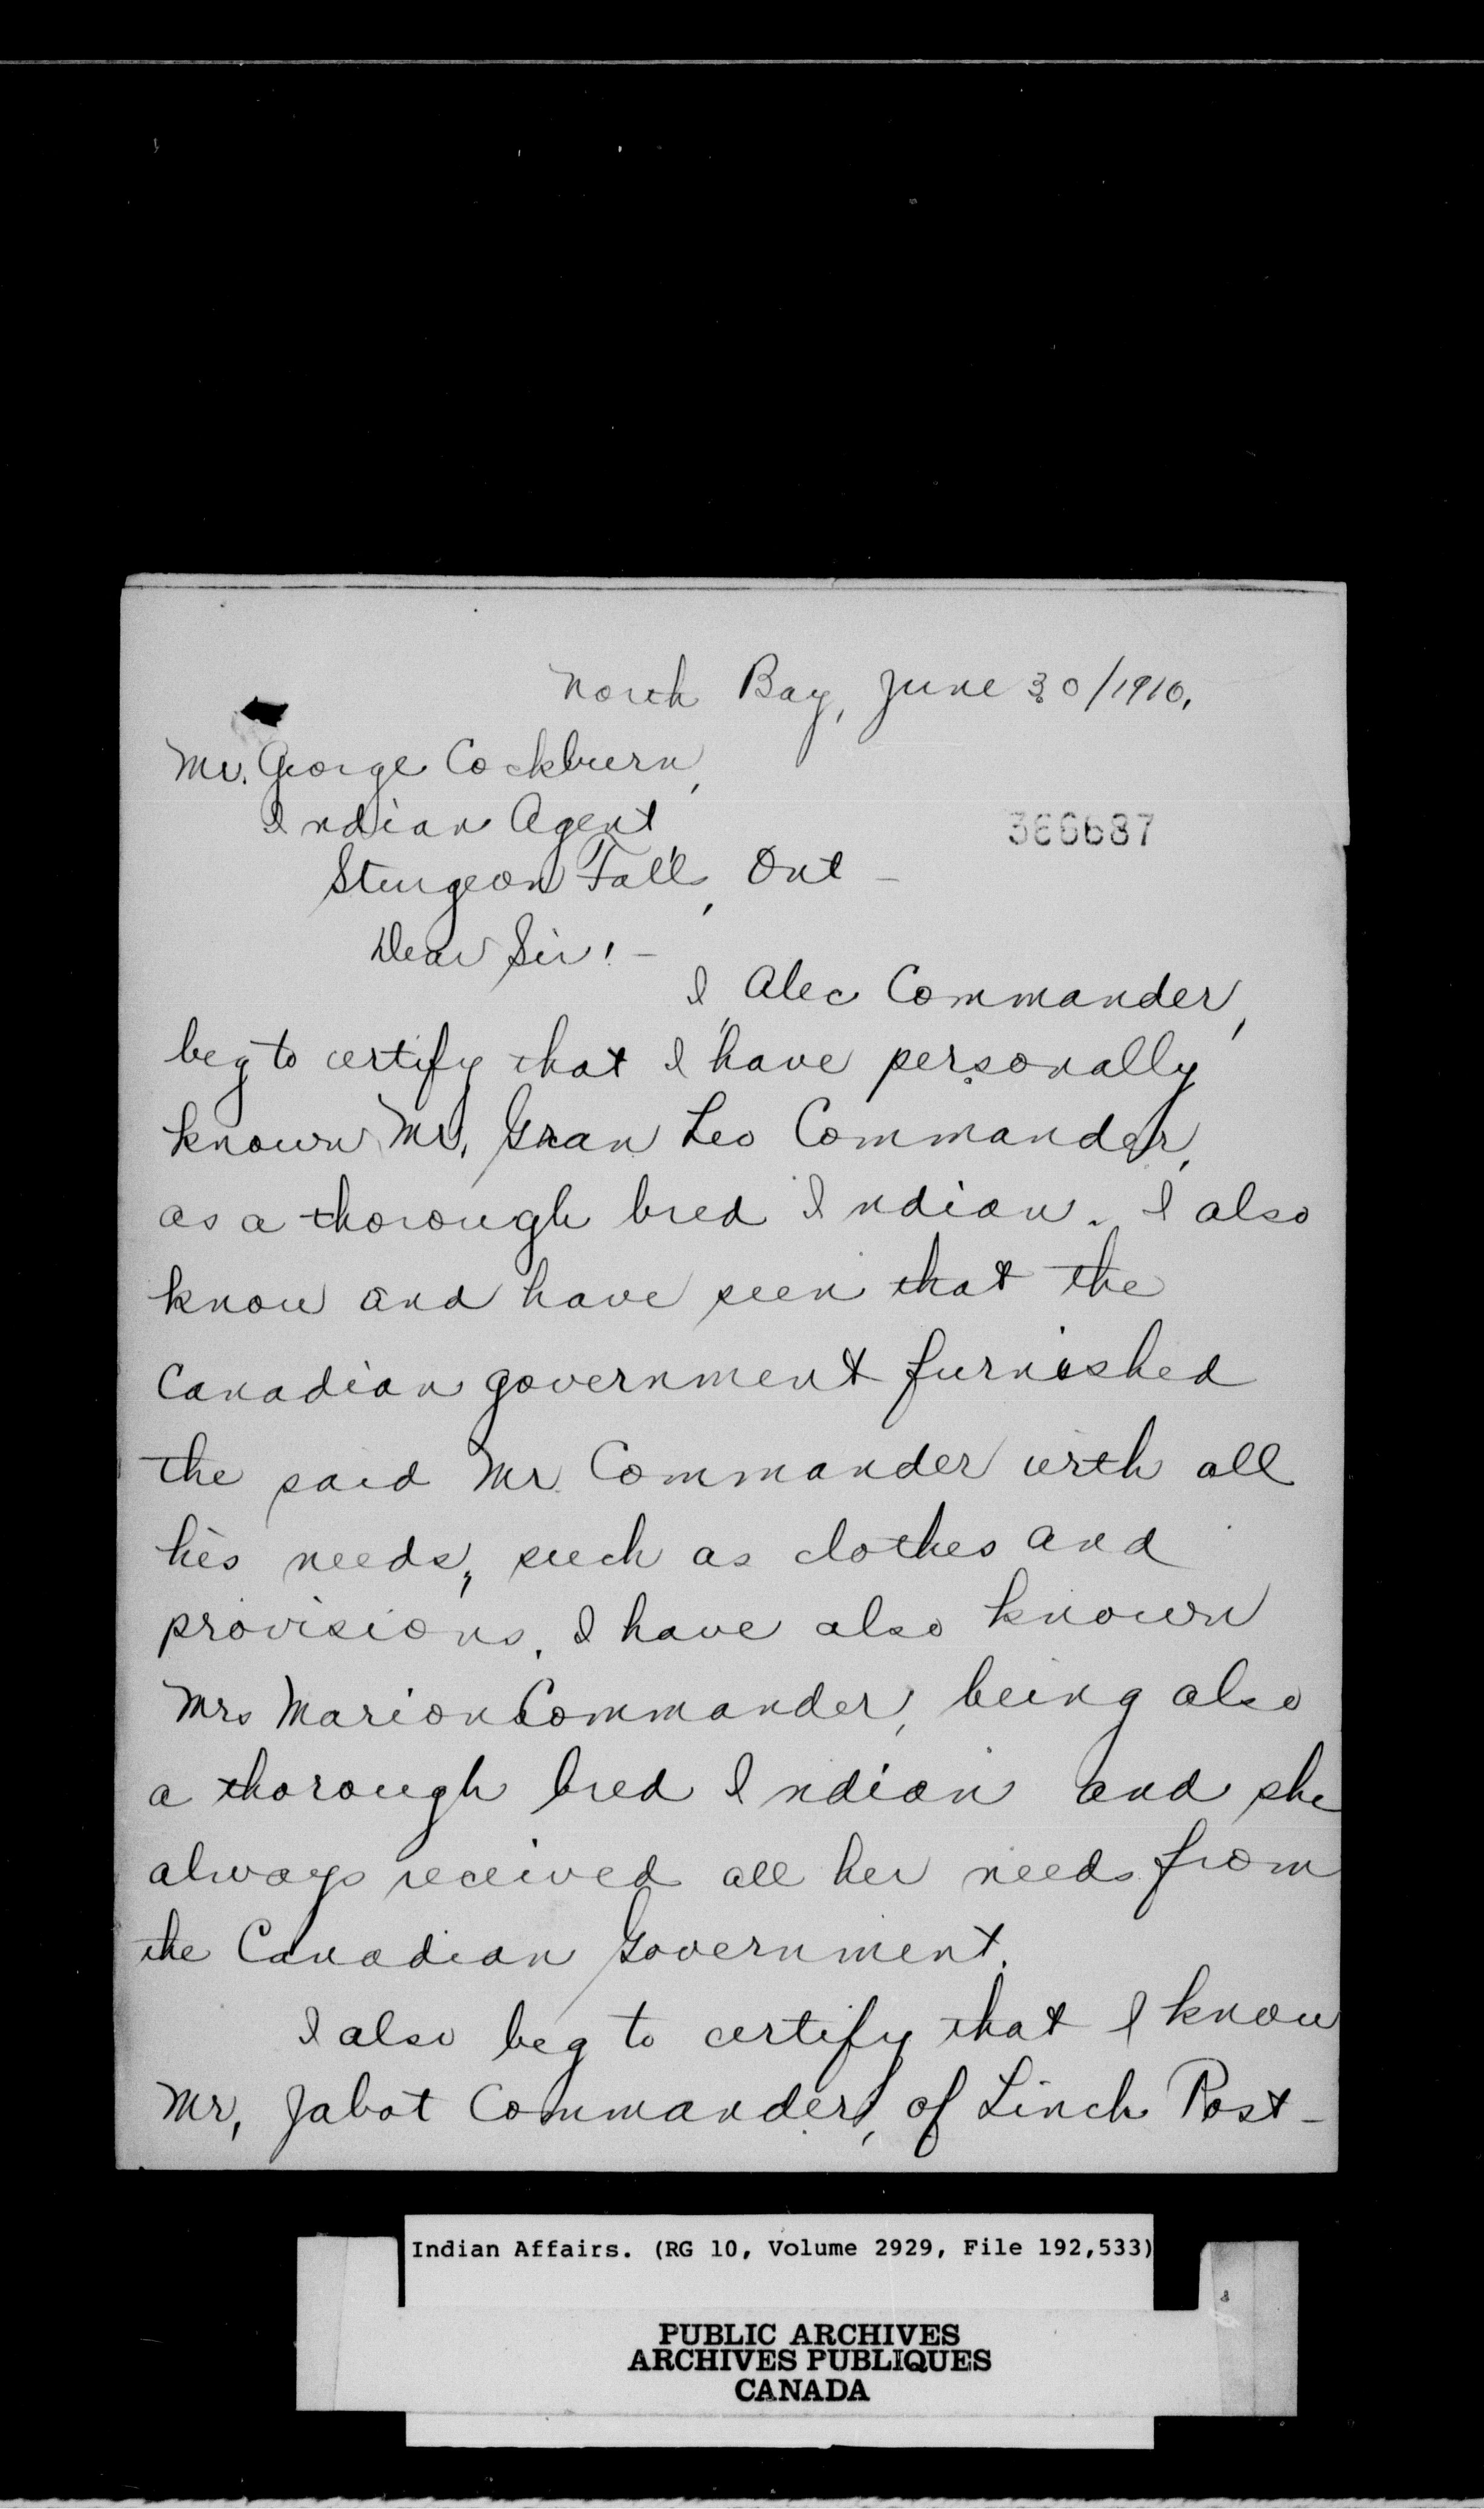 North Bay, June 30/1910.
Mr. George Cockburn,
Indian Agent
366687
Sturgeon Falls, Ont -
Dear Sir! -
I, Alec Commander,
beg to certify that I have personally
known Mr. Gran Leo Commander,
as a thorough bred Indian. I also
know and have seen that the
Canadian government furnished
the said Mr. Commander with all
his needs, such as clothes and
provisions. I have also known
Mrs Marion Commander, being also
a thorough bred Indian and she
always received all her needs from
the Canadian Government.
I also beg to certify that I know
Mr, Jabot Commander, of Linch Post -
Indian Affairs. (RG 10, Volume 2929, File 192,533)
PUBLIC ARCHIVES
ARCHIVES PUBLIQUES
CANADA